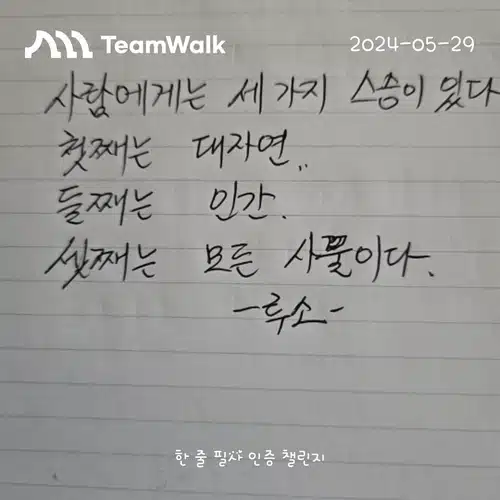 TeamWalk
2024-05-29
사람에게는 세가지 스승이 있다
첫째는 대자연..
둘째는 인간.
셋째는 모든 사물이다.
-루소-
한 줄 필사 인증 챌린지